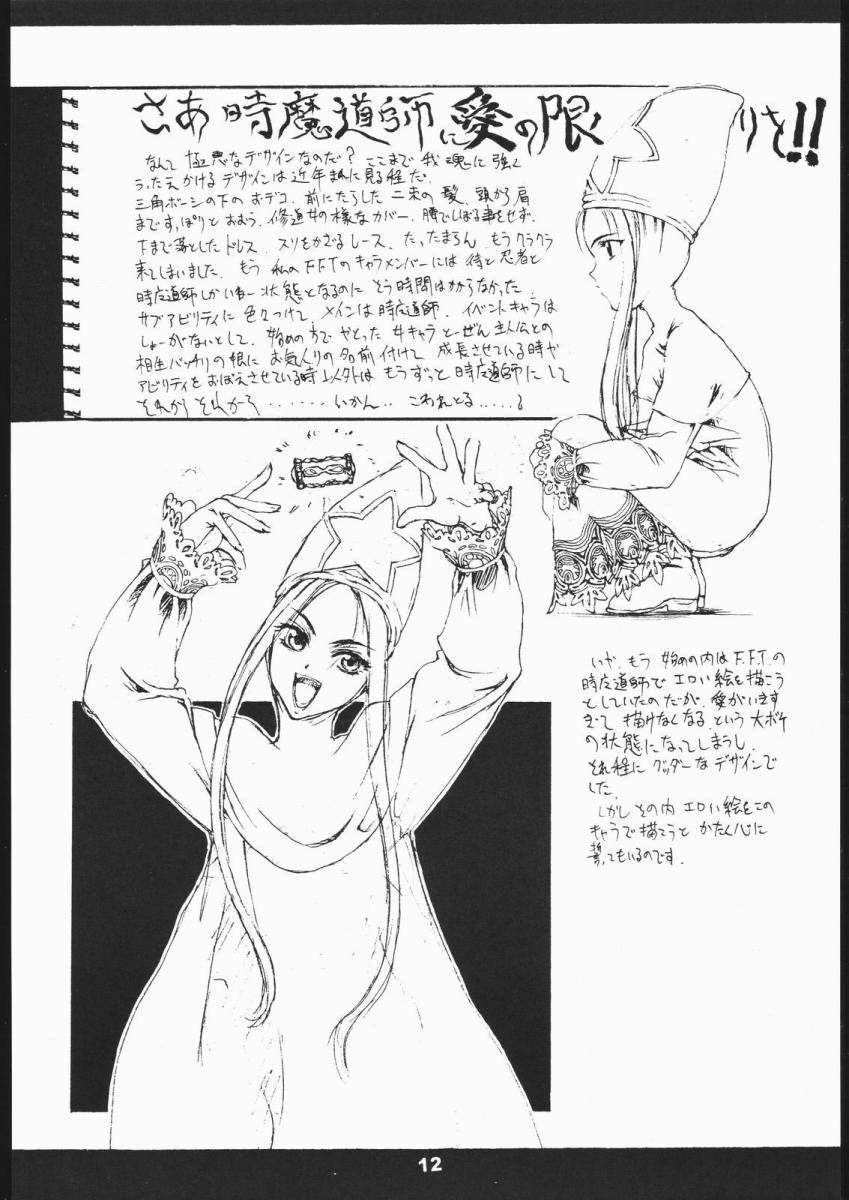 さあ時魔道師に愛の限りを!!
なんて極悪なデザインなのだ?ここまで我魂に強く
うったえかけるデザインは近年まれに見る程だ.
三角ボーシの下のおデコ.前にたらした二束の髪、頭から肩
まですっぽりとおおう.修道女の様なカバー.腰でしぼる事をせず.
下まで落としたドレス スソをかざるレース. たったまらん.もうクラクラ
来てしまいました.もう私のF.F.Tのキャラメンバーには侍と忍者と
時魔道師しかいねー状態となるのにそう時間はかからなかった.
サブアビリティに色々つけて メインは時魔道師.イベントキャラは
しょーがないとして.始めの方でやとった女キャラとーぜん主人公との
相性バッチリの娘にお気入りの名前付けて 成長させている時や
アビリティをおぼえさせている時以外はもうずっと時魔道師にして
それから それから・・・・・・いかん・・こわれとる・・・・・
いや.もう 始めの内はF.F.T.の
時魔道師でエロい絵を描こう
としていたのだが.愛がいきす
ぎて 描けなくなる.という大ボケ
の状態になってしまうし.
それ程にグッダーなデザインで
した.
しかしその内エロい絵をこの
キャラで描こうと かたく心に
誓ってもいるのです.
12